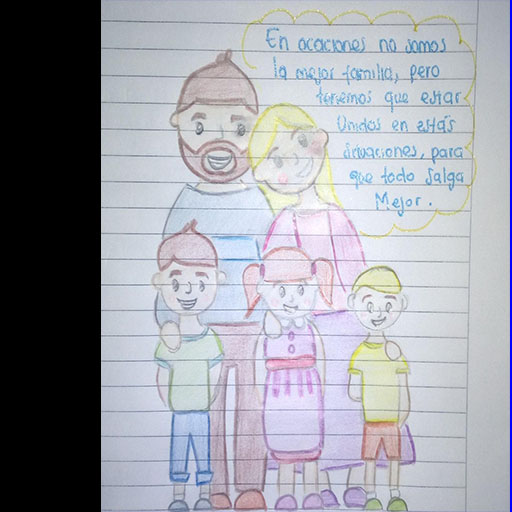 En ocaciones no somos
la mejor familia, pero
tenemos que estar
Unidos en estás
situaciones, para
que todo salga
Mejor.